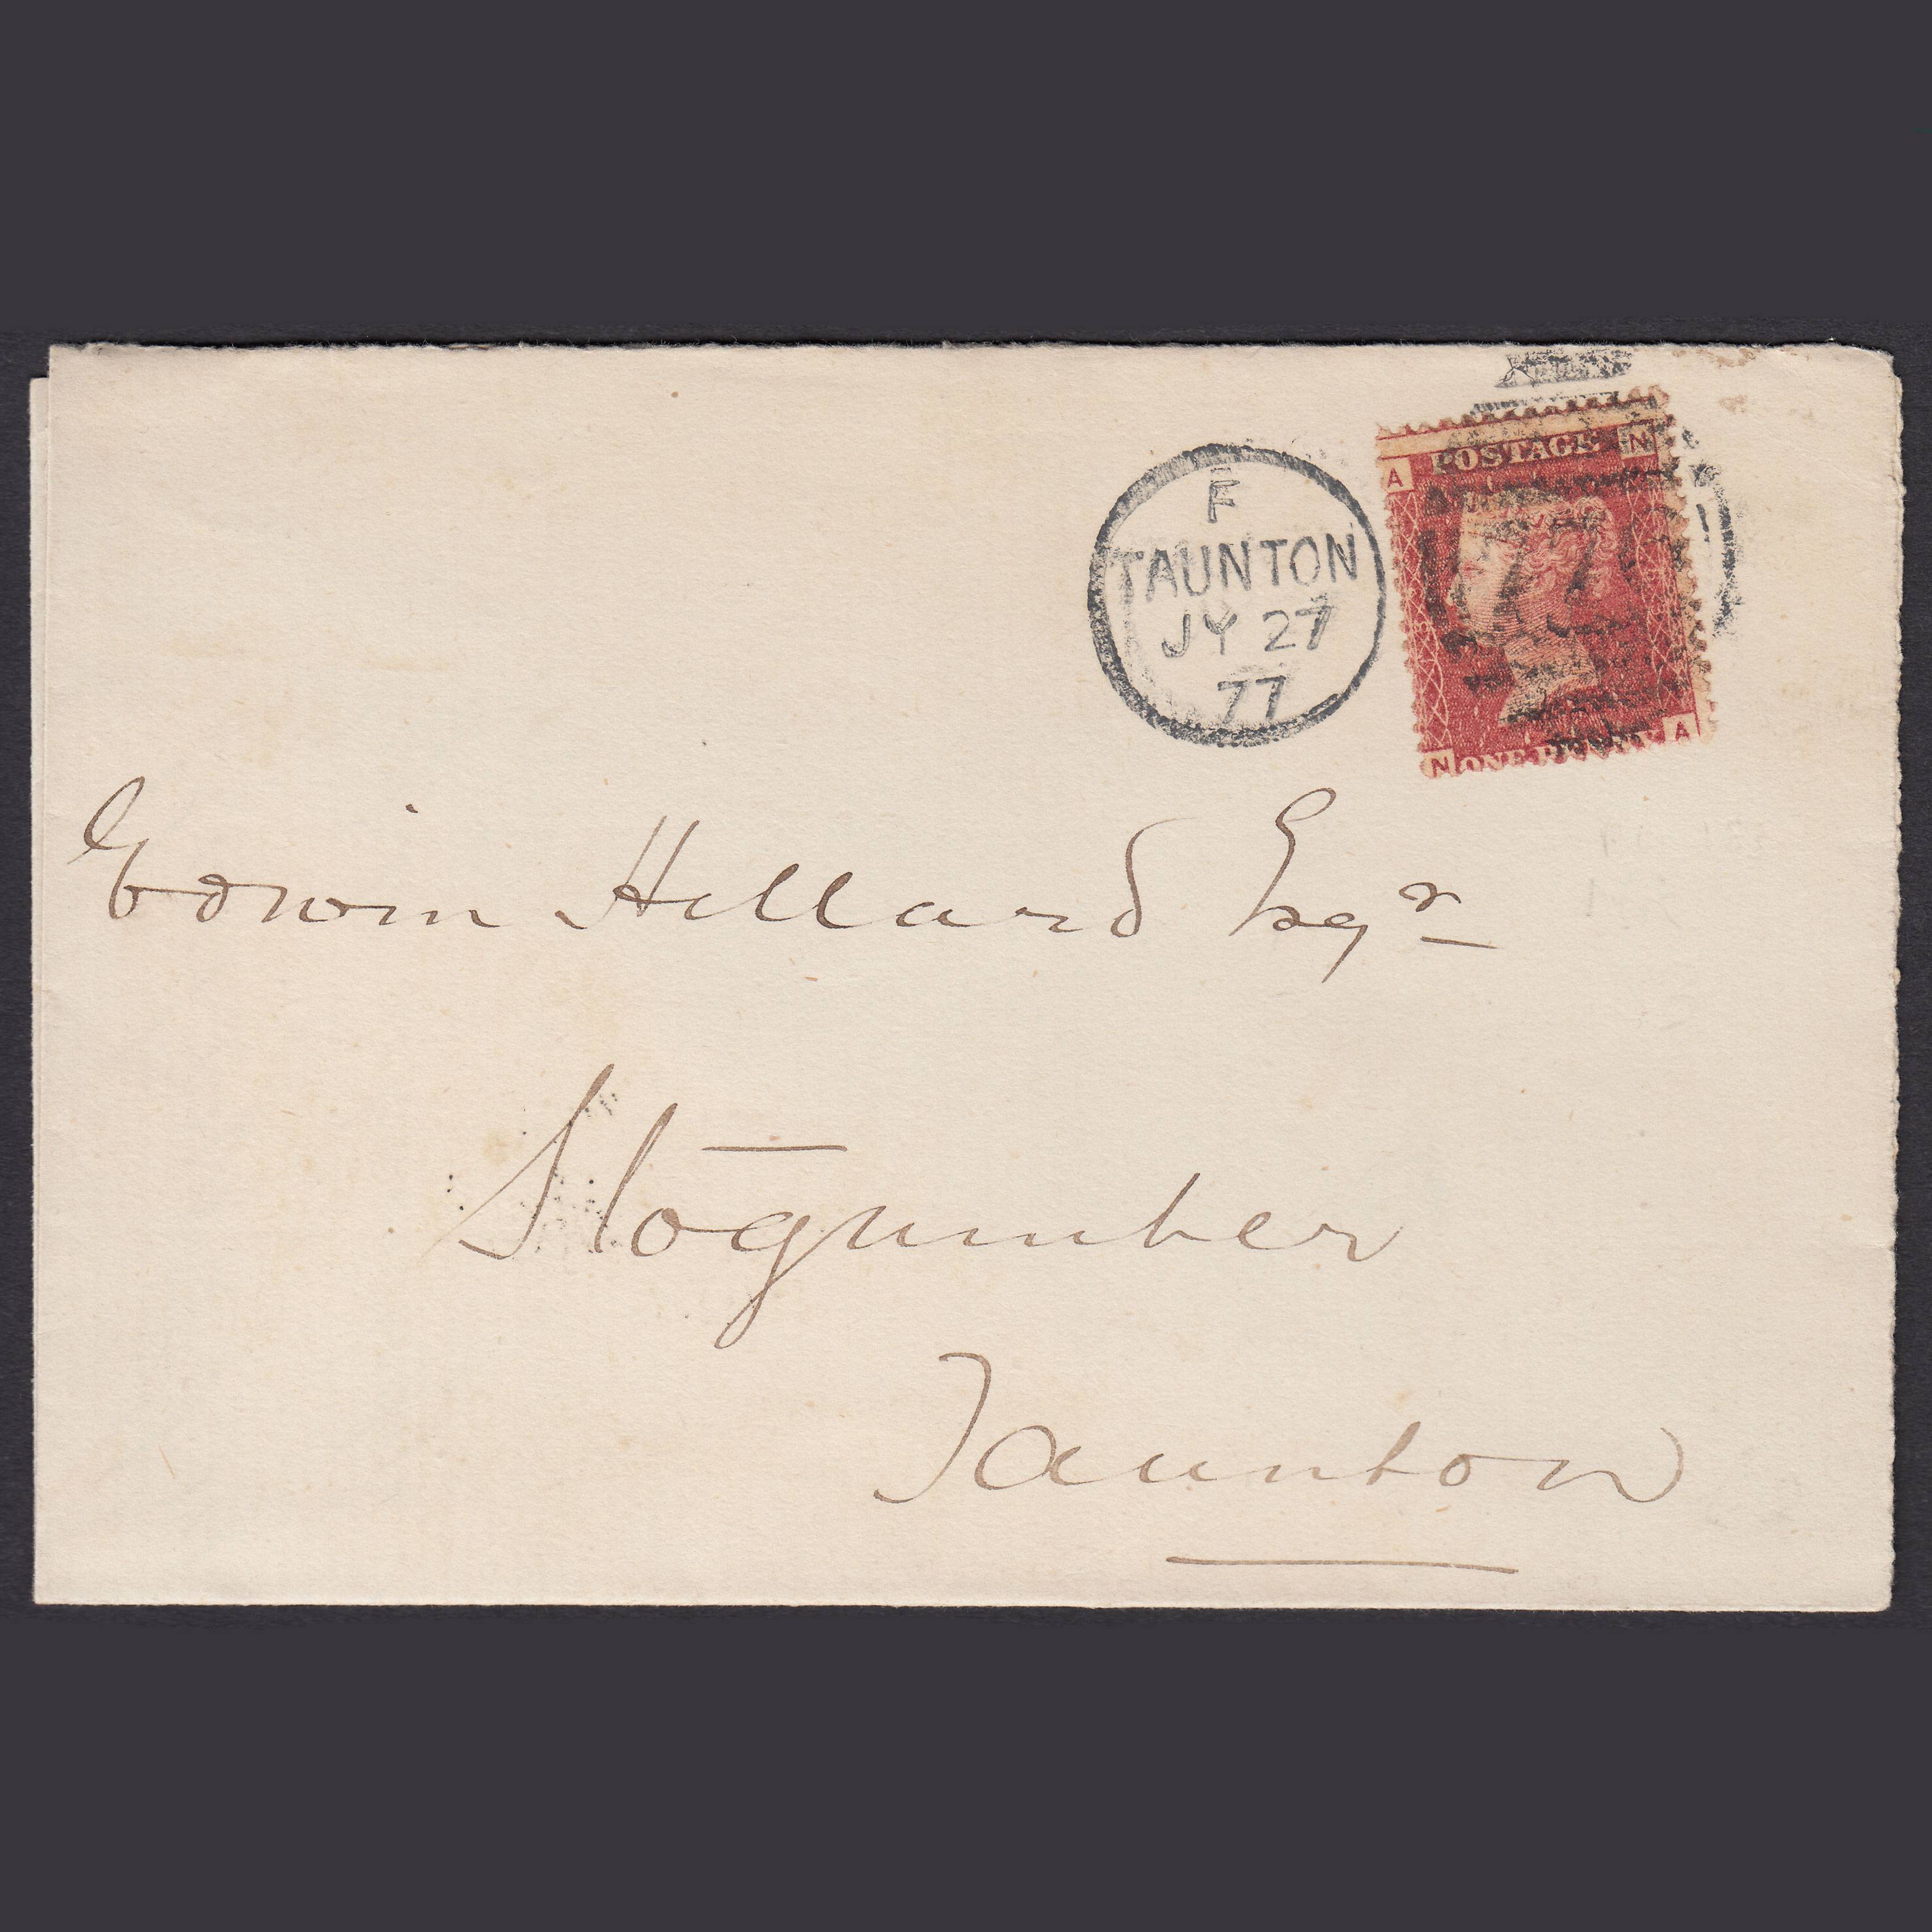 F
TAUNTON
JY 27
77
A POSTAGE N
776
N ONE PENNY A
Edwin Hellard Esqr
Stogumber
Taunton